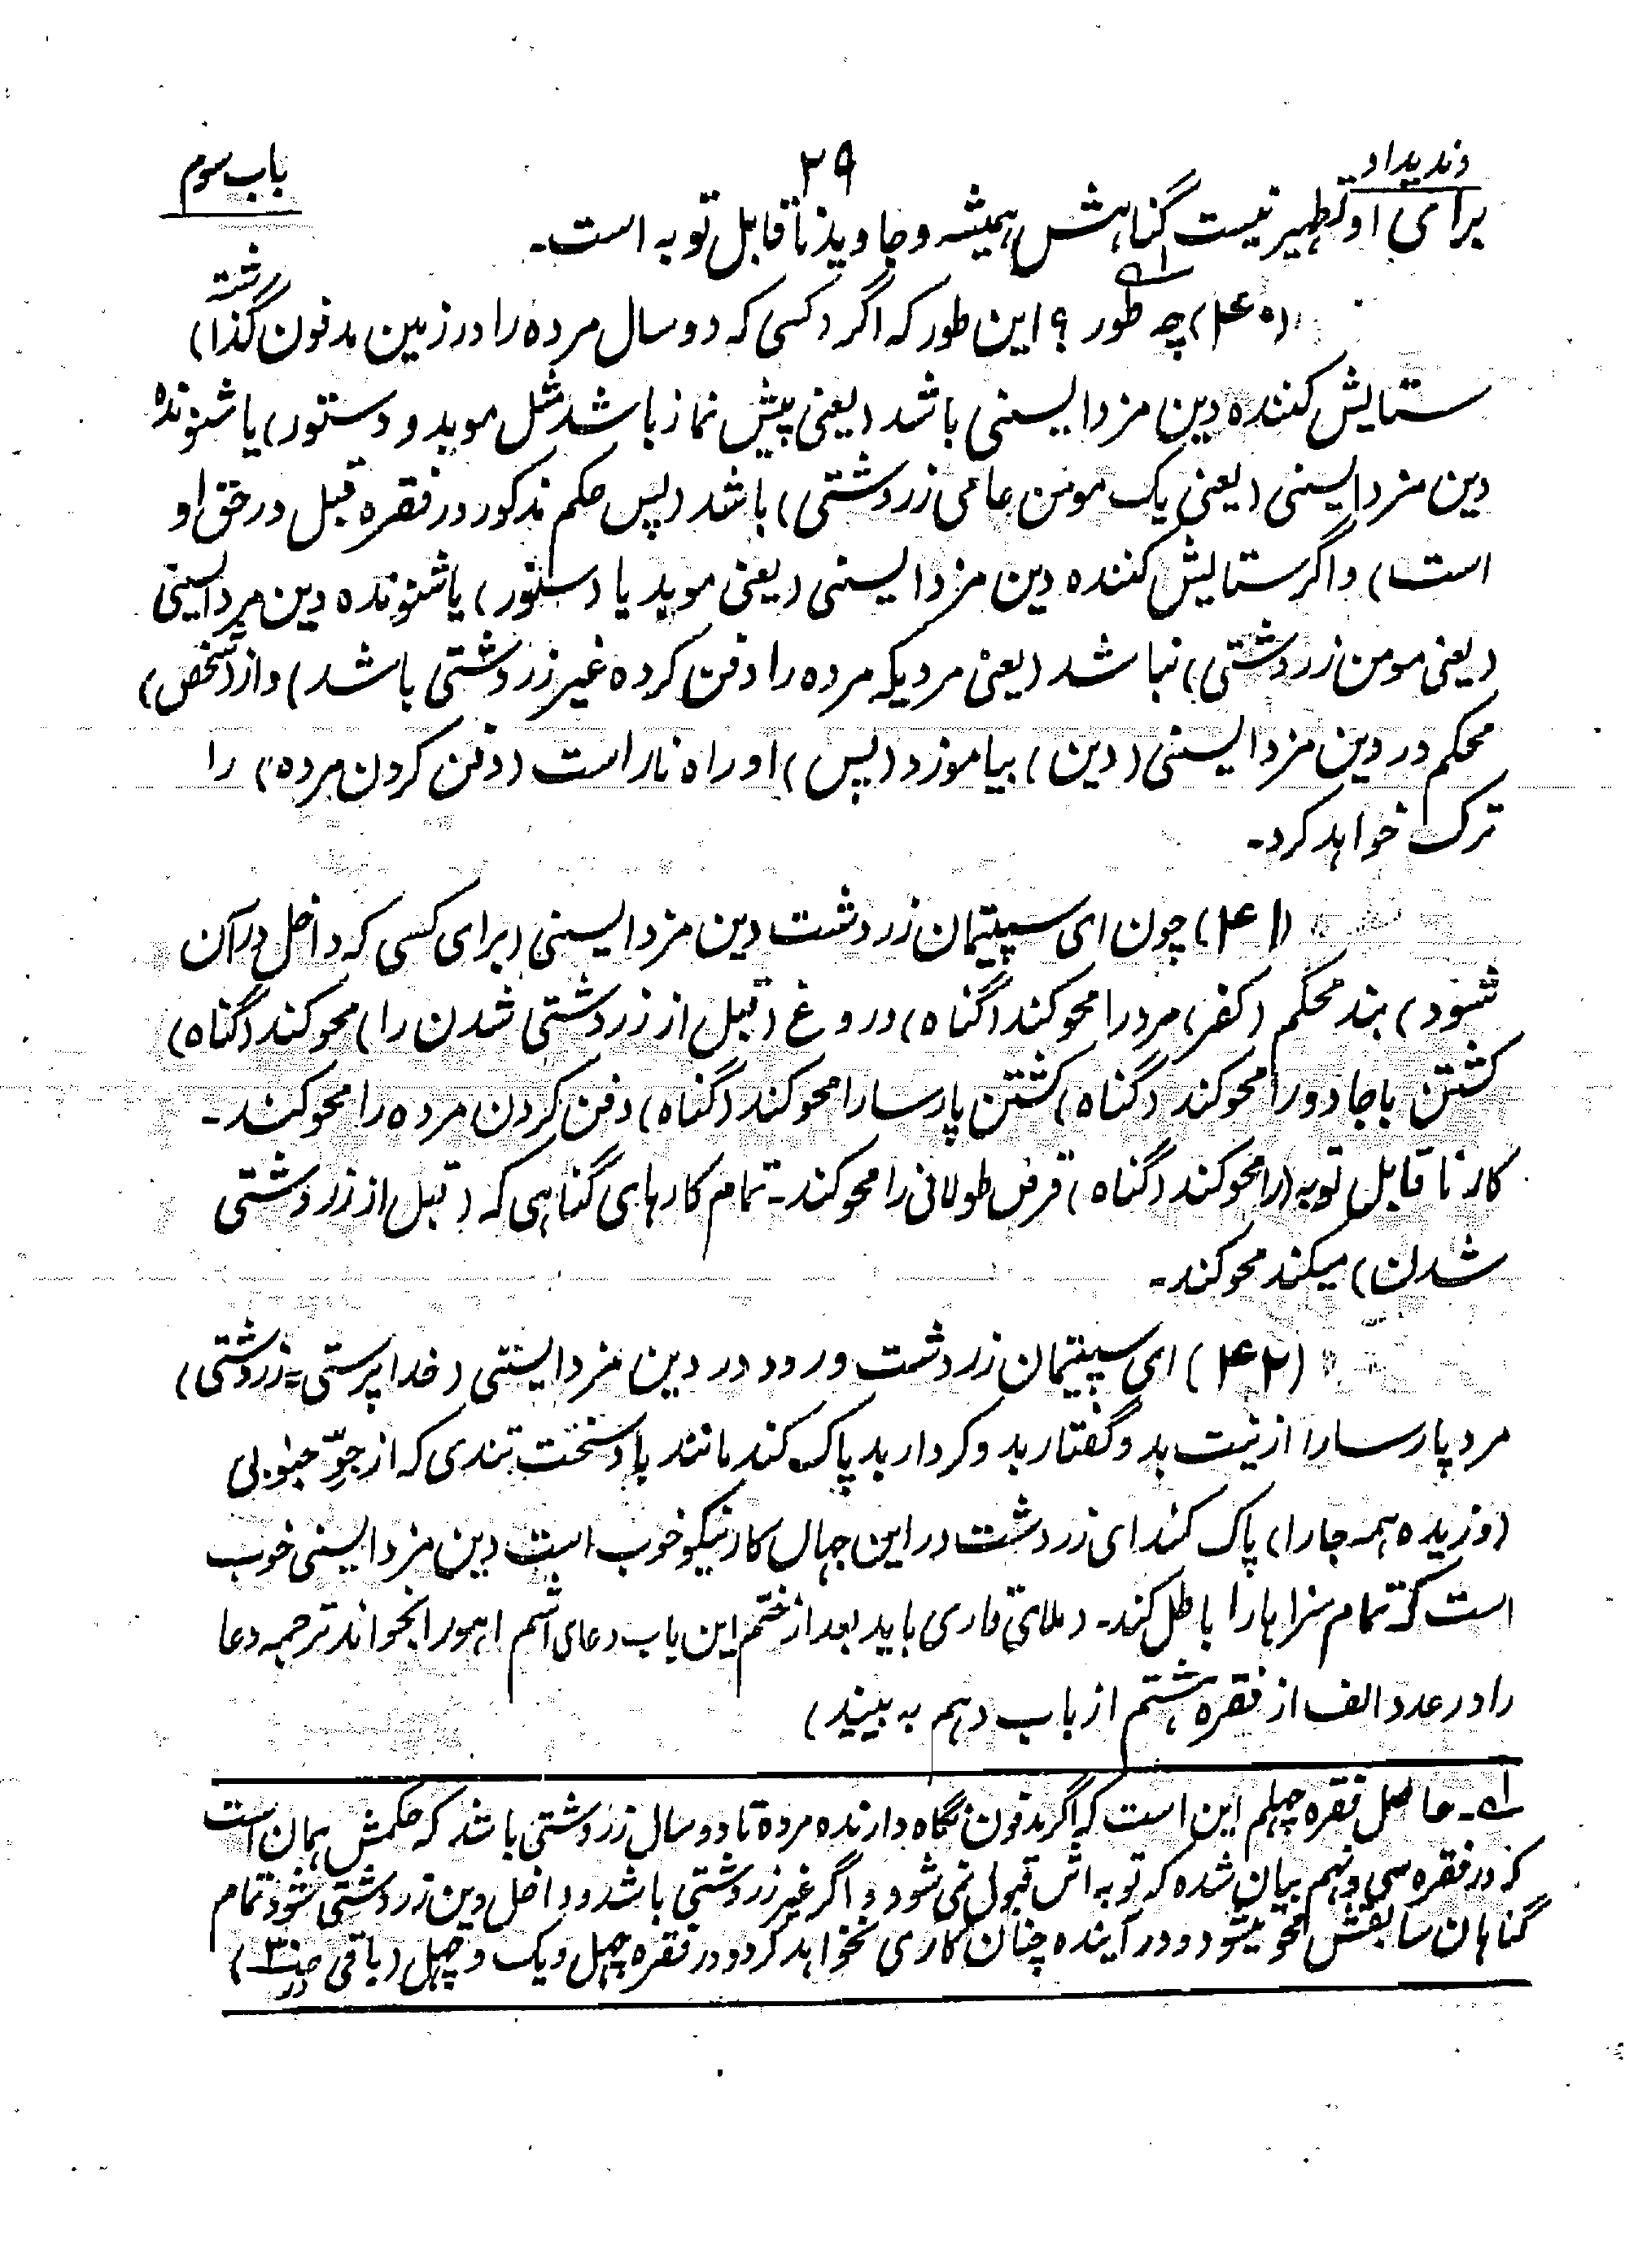 وندیداد ۲۹ باب سوم
برای او تطهیر نیست گناهش همیشه و جاوید ناقابل توبه است۔
(۴۰) چه طور؟ این طور که اگر (کسی که دو سال مرده را در زمین مدفون گذاشته)
ستایش کننده دین مزدایسنی باشد (یعنی پیش نماز باشد مثل موبد و دستور) یا شنونده
دین مزدایسنی (یعنی یک مومن عامی زردشتی) باشد (پس حکم مذکور در فقره قبل در حق او
است) و اگر ستایش کننده دین مزدایسنی (یعنی موبد یا دستور) یا شنونده دین مزدایسنی
(یعنی مومن زردشتی) نباشد (یعنی مردیکه مرده را دفن کرده غیر زردشتی باشد) و از (شخص)
محکم در دین مزدایسنی (دین) بیاموزد (پس) او راه ناراست (دفن کردن مرده) را
ترک خواهد کرد۔
(۴۱) چون ای سپیتمان زردشت دین مزدایسنی (برای کسی که داخل در آن
شود) بند محکم (کفر) مرد را محو کند (گناه) دروغ (قبل از زردشتی شدن را) محو کند (گناه)
کشتن با جادو را محو کند (گناه) کشتن پارسا را محو کند (گناه) دفن کردن مرده را محو کند۔
کار ناقابل توبه (را محو کند (گناه) قرض طولانی را محو کند۔ تمام کارهای گناهی که (قبل از زردشتی
شدن) میکند محو کند۔
(۴۲) ای سپیتمان زردشت ورود در دین مزدایسنی (خدا پرستی = زردشتی)
مرد پارسا را از نیت بد و گفتار بد و کردار بد پاک کند مانند باد سخت تندی که از جوّ جنوبی
(وزیده همه جا را) پاک کند ای زردشت در این جهان کار نیکو خوب است دین مزدایسنی خوب
است که تمام سزاها را باطل کند۔ (ملای قاری باید بعد از ختم این باب دعای اشم اهو را بخواند ترجمه دعا
را در عدد الف از فقره هشتم از باب دهم به بیند)
۱ه۔ حاصل فقره چهلم این است که اگر مدفون نگاه دارنده مرده تا دو سال زردشتی باشد که حکمش همان است
که در فقره سی و نهم بیان شده که توبه اش قبول نمی شود و اگر غیر زردشتی باشد و داخل دین زردشتی شود تمام
گناهان سابقش محو میشود و در آینده چنان کاری نخواهد کرد و در فقره چهل و یک و چهل (باقی در